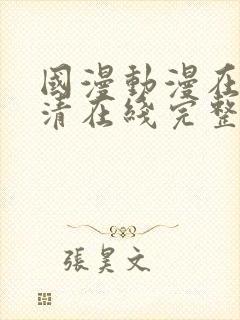 國漫動漫在
清在綫完整
張昊文